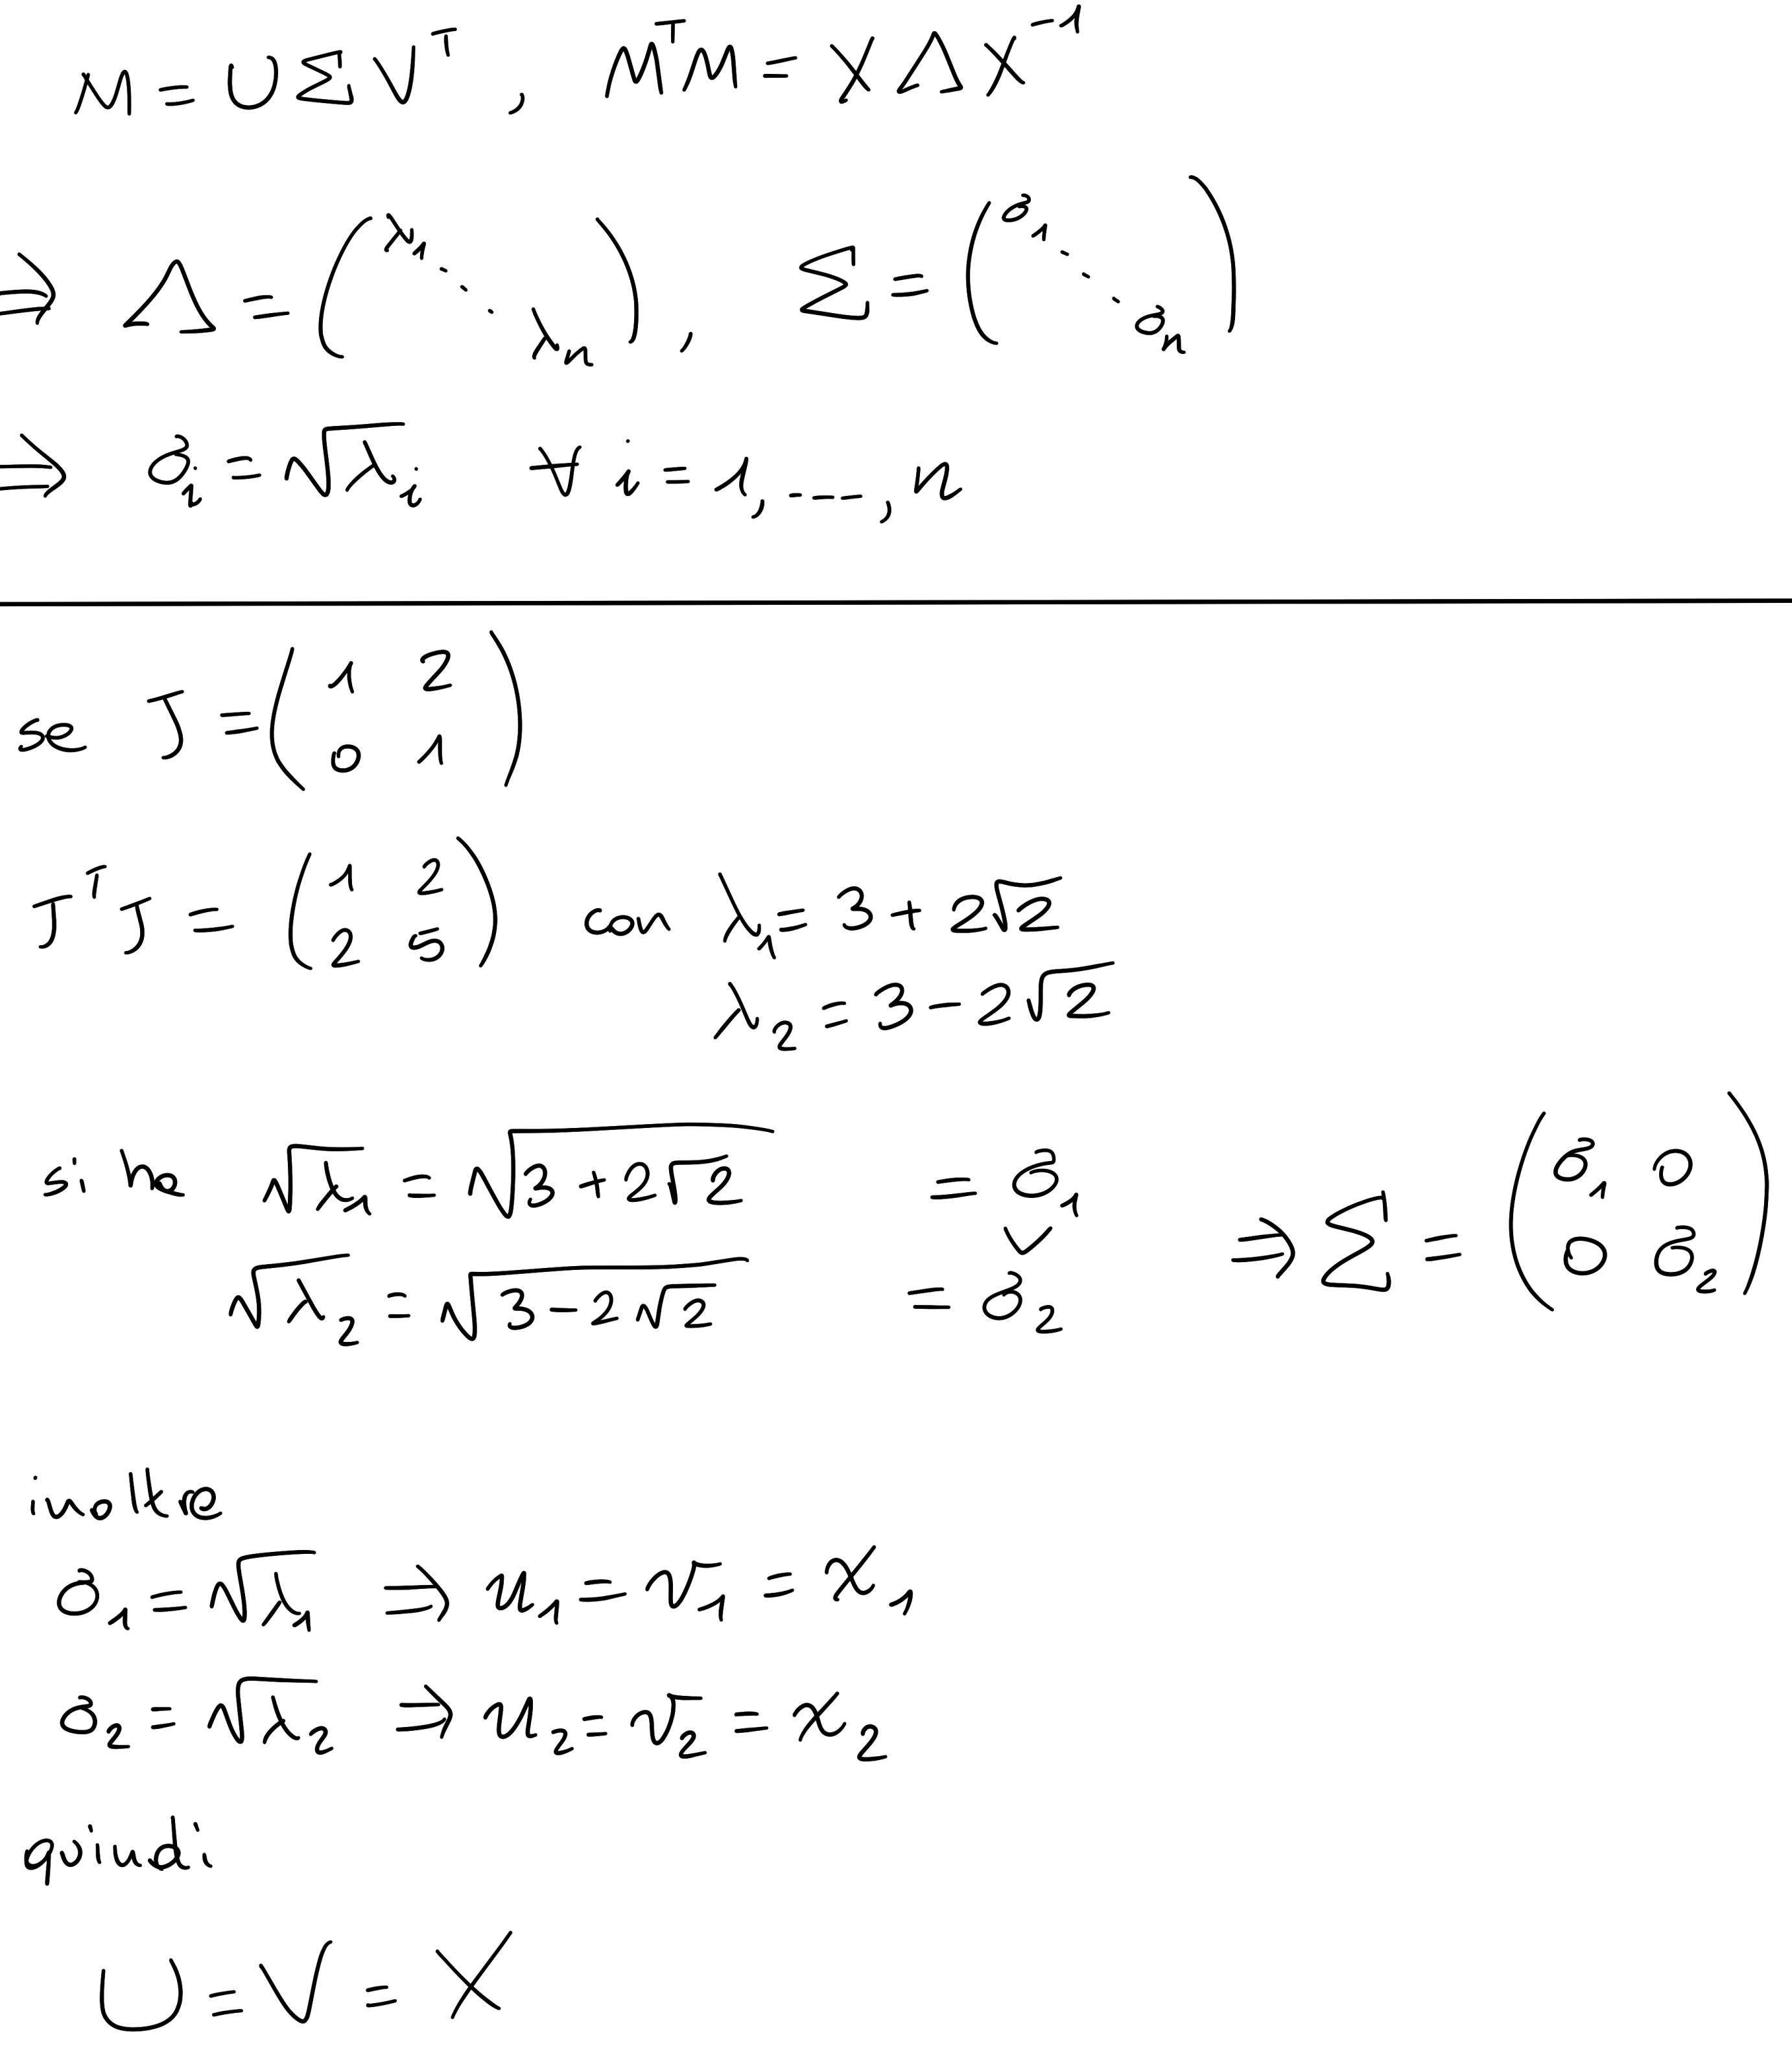 M = U Σ V^T , M^T M = X Λ X^{-1}
⇒ Λ = ( λ_1 ⋱ λ_n ) , Σ = ( σ_1 ⋱ σ_n )
⇒ σ_i = √λ_i ∀ i = 1, ---, n
se J = ( 1 2
0 1 )
J^T J = ( 1 2
2 5 ) con λ_1 = 3 + 2√2
λ_2 = 3 - 2√2
si ha √λ_1 = √(3 + 2√2) = σ_1
∨
√λ_2 = √(3 - 2√2) = σ_2
⇒ Σ = ( σ_1 0
0 σ_2 )
inoltre
σ_1 = √λ_1 ⇒ u_1 = v_1 = x_1
σ_2 = √λ_2 ⇒ u_2 = v_2 = x_2
quindi
U = V = X